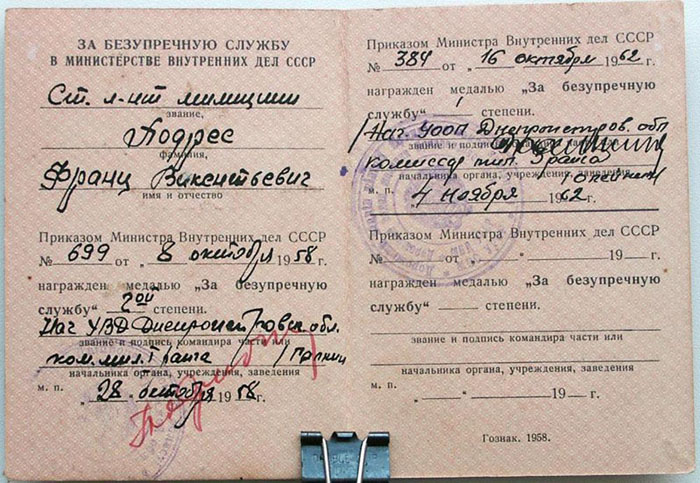 ЗА БЕЗУПРЕЧНУЮ СЛУЖБУ
В МИНИСТЕРСТВЕ ВНУТРЕННИХ ДЕЛ СССР
Ст. л-нт милиции
звание,
Подрес
фамилия,
Франц Викентьевич
имя и отчество
Приказом Министра Внутренних дел СССР
№ 699 от „ 8 октября 1958 г.
награжден медалью „За безупречную
службу" 2ой степени.
Нач УВД Днепропетровск. обл.
звание и подпись командира части или
ком. мил. 3 ранга
начальника органа, учреждения, заведения
м. п. „ 28 октября 1958 г.
Приказом Министра Внутренних дел СССР
№ 384 от „ 16 октября 1962 г.
награжден медалью „За безупречную
службу" I степени.
Нач. УООП Днепропетров. обл
звание и подпись командира части или
комиссар мил. 3 ранга
начальника органа, учреждения, заведения
м. п. „ 4 ноября 1962 г.
Приказом Министра Внутренних дел СССР
№ от „ 19 г.
награжден медалью „За безупречную
службу" степени.
звание и подпись командира части или
начальника органа, учреждения, заведения
м. п. „ 19 г.
Гознак. 1958.